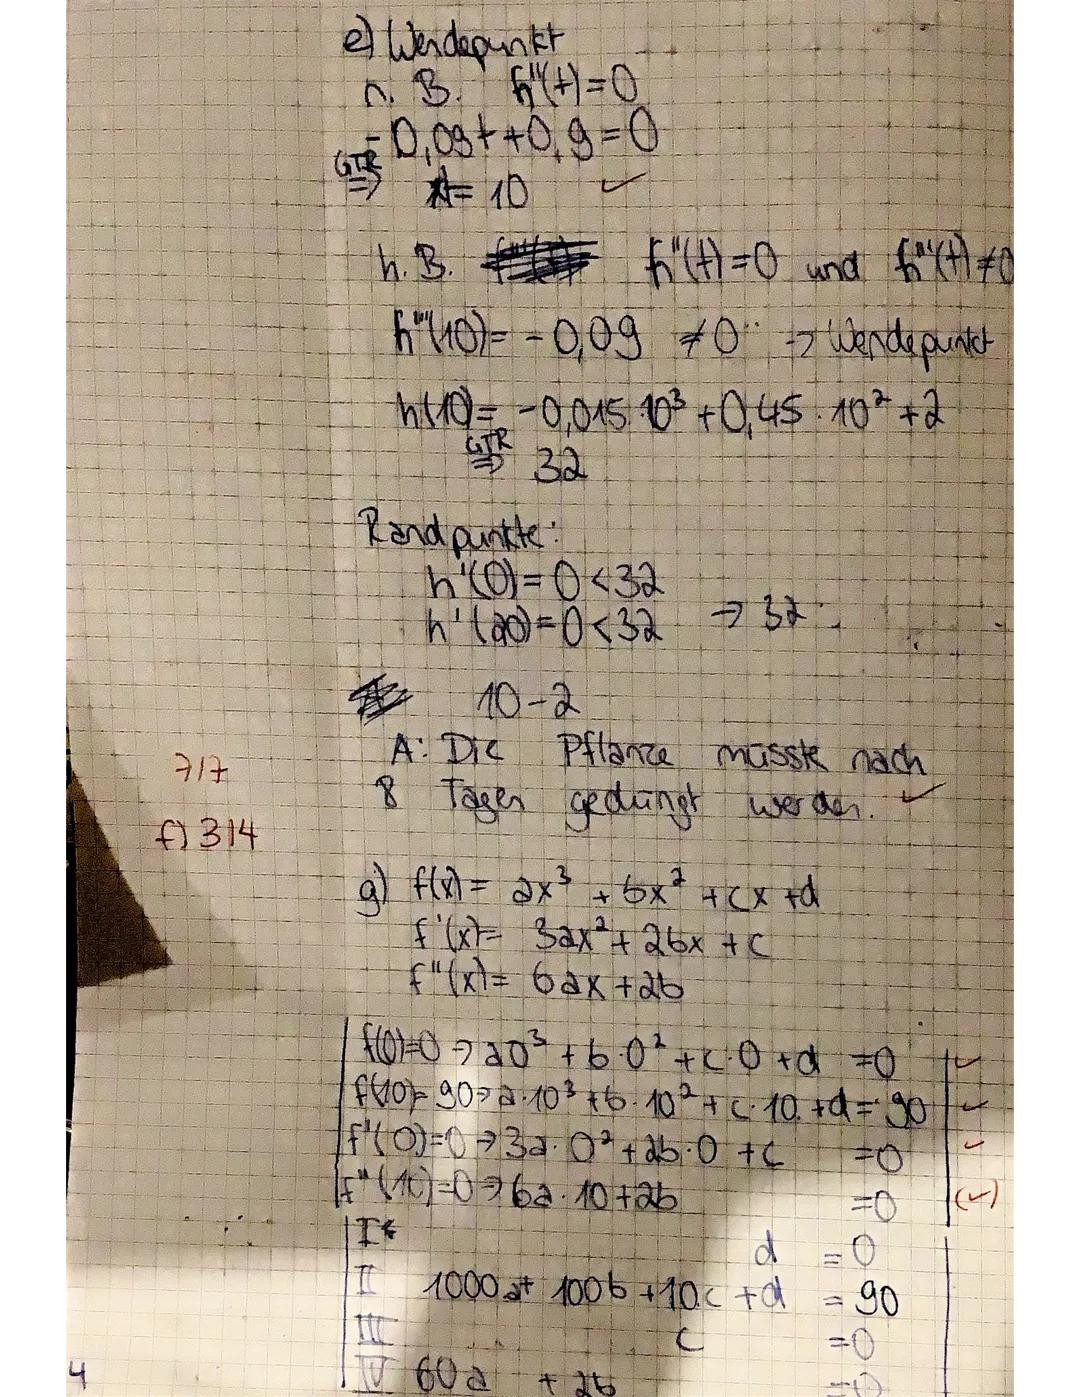 e) Wendepunkt
n. B. h''(t)=0
-0,09t+0,9=0
GTR
⇒ t=10 ✓
h. B. h''(t)=0 und h'''(t)≠0
h'''(10)= -0,09 ≠0 → Wendepunkt
h(10)= -0,015·10³+0,45·10²+2
GTR
⇒ 32
Randpunkte:
h'(0)=0<32
h'(20)=0<32 → 32
10-2
A: Die Pflanze müsste nach
7/7
8 Tagen gedüngt werden. ✓
f) 3/4
g) f(x)= ax³ + bx² + cx + d
f'(x)= 3ax²+2bx+c
f''(x)= 6ax+2b
f(0)=0 → a0³+b·0²+c·0+d =0 ✓
f(10)=90→a·10³+b·10²+c·10+d=90 ✓
f'(0)=0→3a·0²+2b·0+c =0 ✓
f''(10)=0→6a·10+2b =0 (✓)
I d =0
II 1000a+100b+10c+d =90
III c =0
IV 60a +2b =0
4